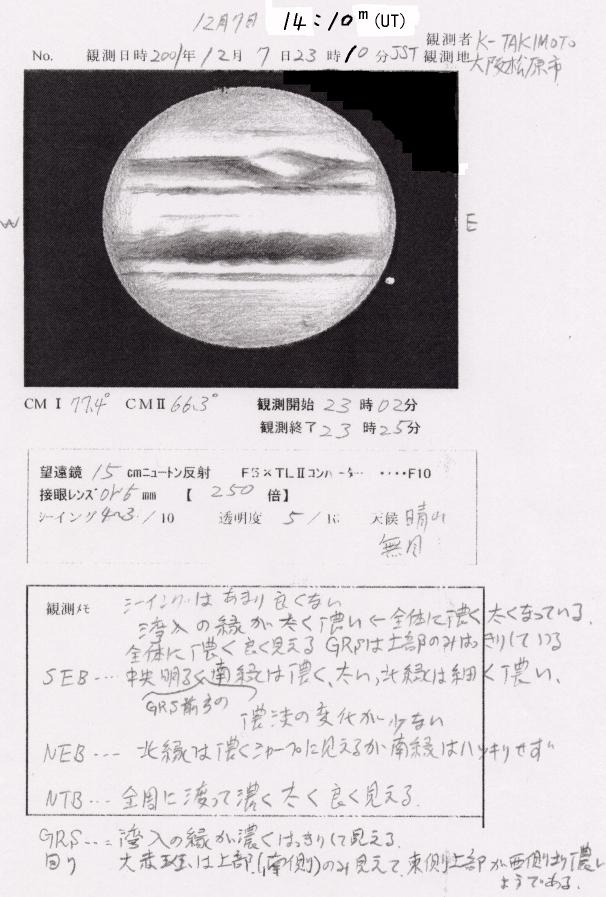 12月7日 14:10m(UT)
観測者 K-TAKIMOTO
No. 観測日時2001年12月7日23時10分JST 観測地 大阪松原市
W E
CM I 77.4° CM II 66.3° 観測開始 23時02分
観測終了 23時25分
望遠鏡 15cmニュートン反射 F5×TLⅡコンバータ… ‥‥F10
接眼レンズOr6mm 【 250 倍】
シーイング4~3/10 透明度 5/10 天候 晴れ
無月
観測メモ シーイングはあまり良くない
湾入の縁が太く濃い←全体に濃く太くなっている.
全体に濃く良く見える GRSは上部のみはっきりしている
SEB… 中央明るく南縁は濃く、太い、北縁は細く濃い、
GRS前方の
濃淡の変化が少ない
NEB--- 北縁は濃くシャープに見えるが南縁はハッキリせず
NTB… 全周に渡って濃く太く良く見える.
GRS---: 湾入の縁が濃くはっきりして見える.
回り 大赤斑は上部(南側)のみ見えて、東側上部が西側より濃い
ようである.